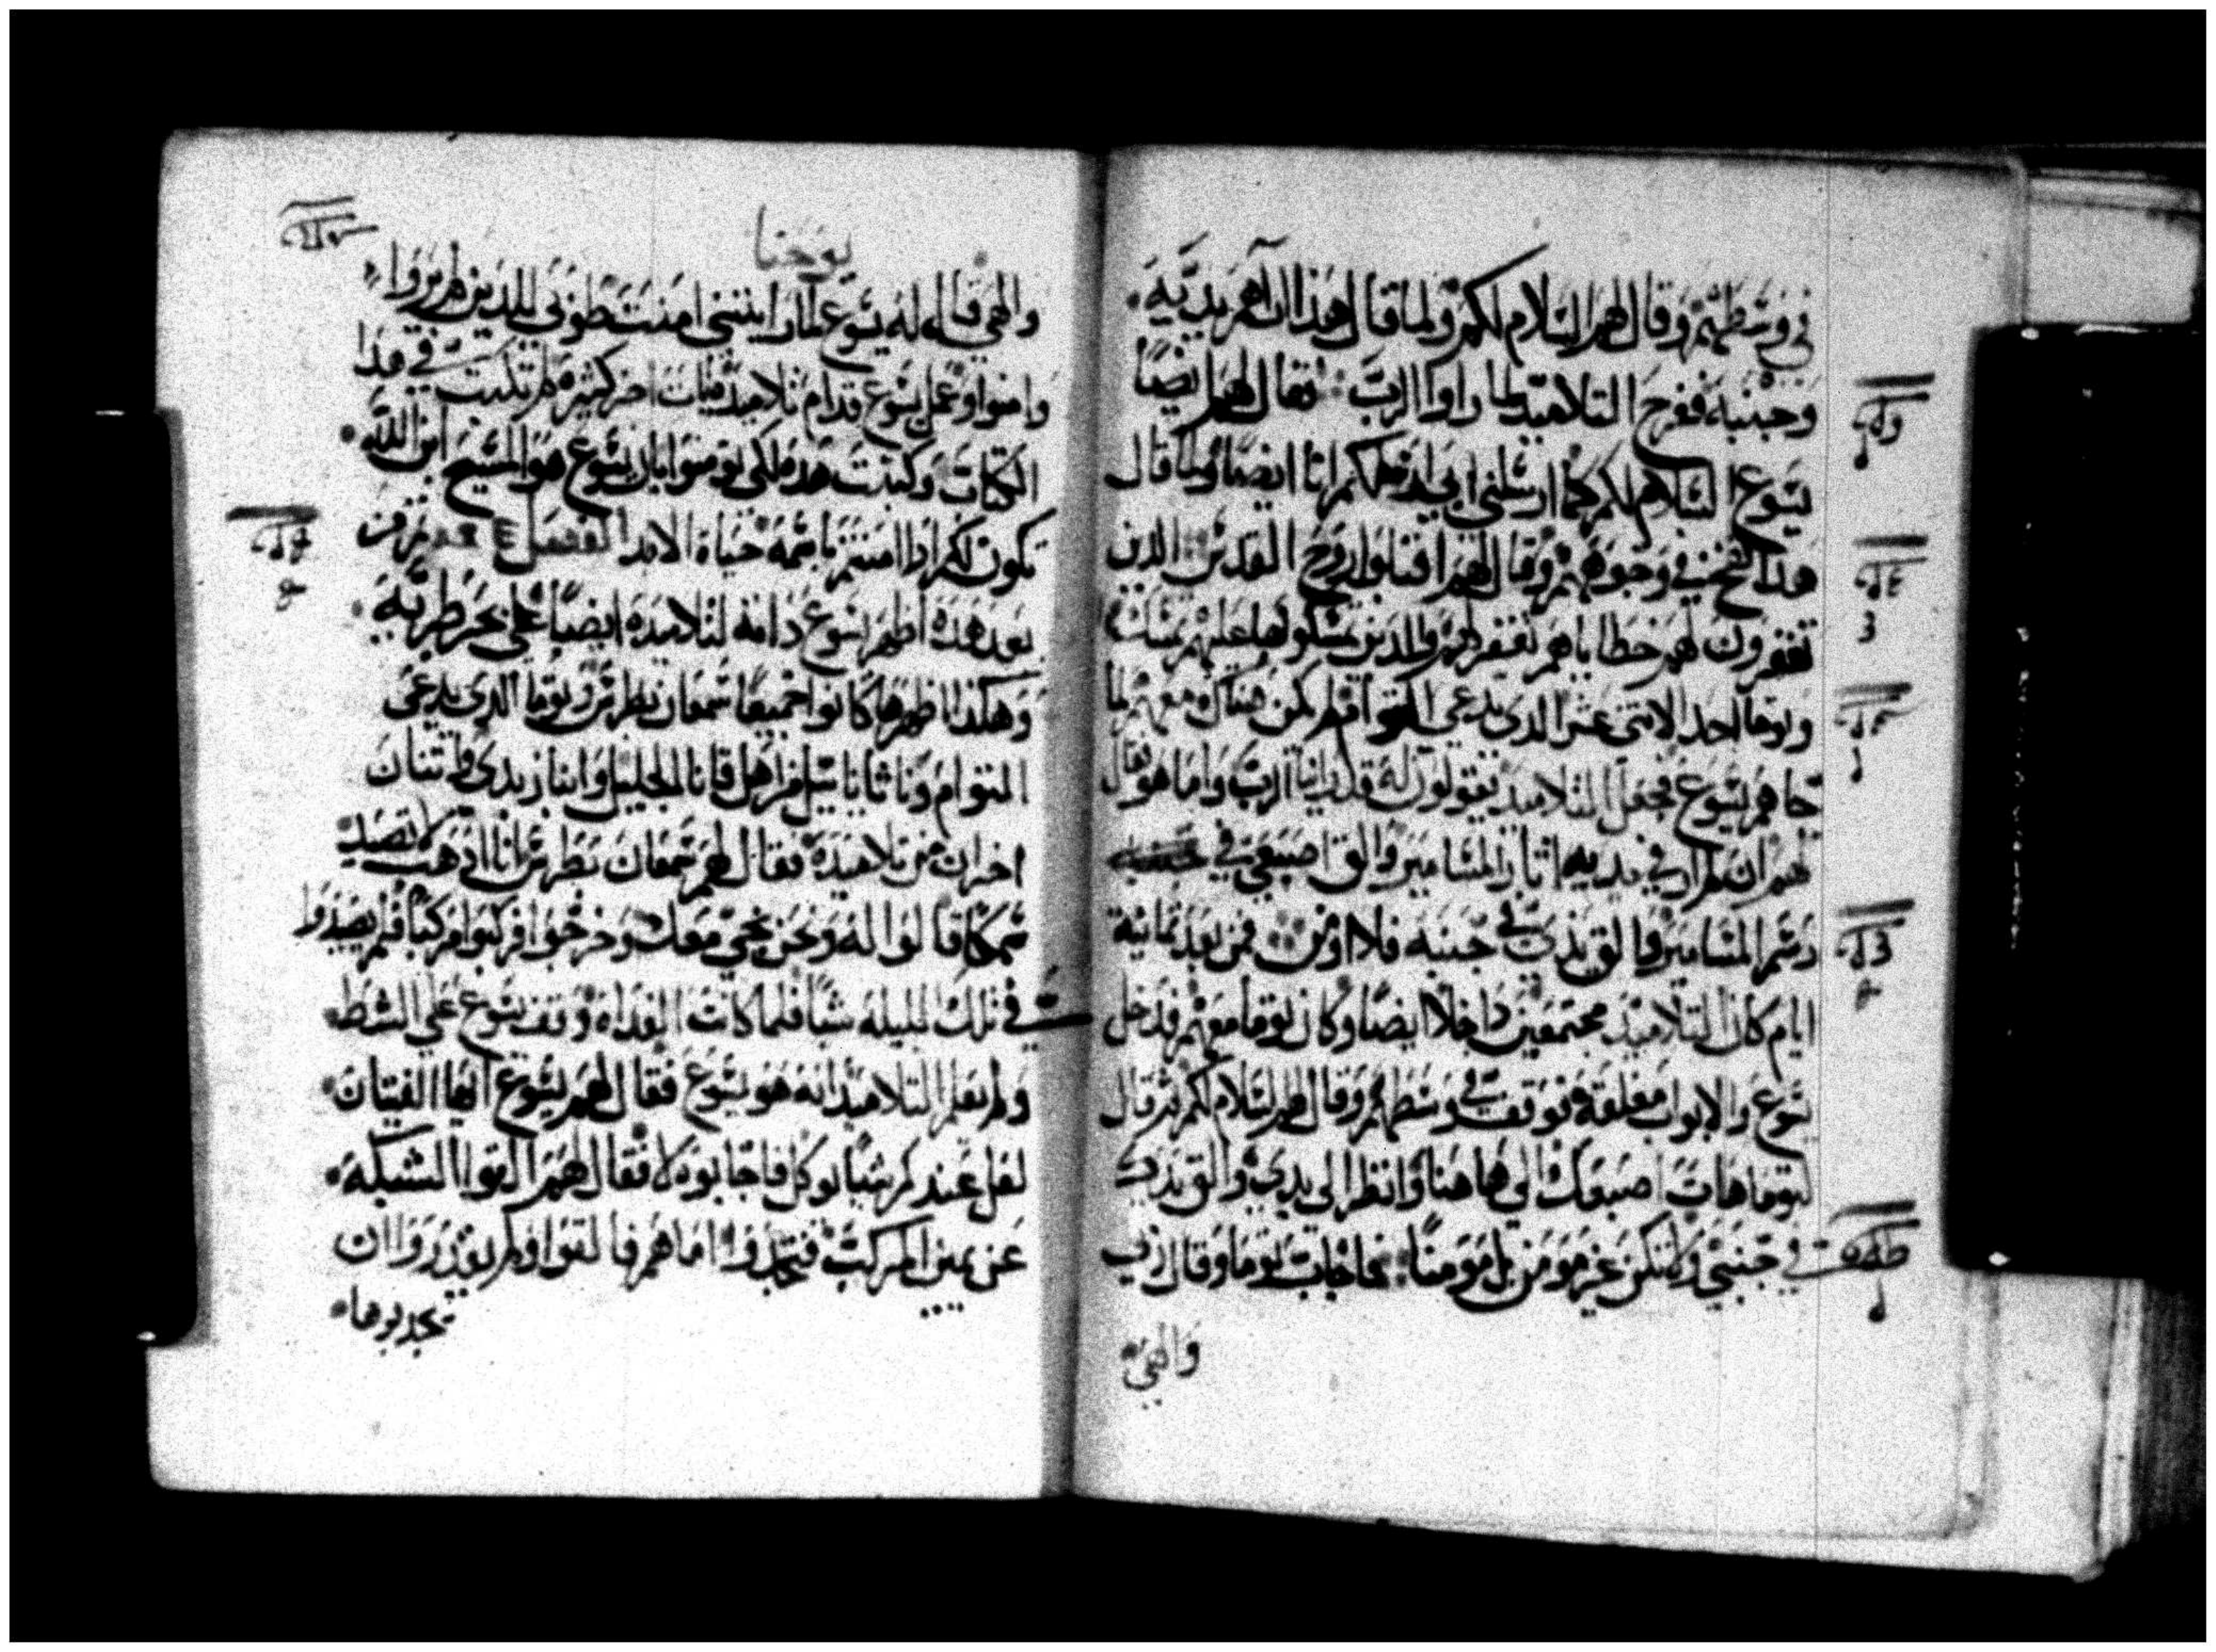 في وسطهم وقال لهم السلام لكم ولما قال هذا اراهم يديه
وجنبه ففرح التلاميد لما راوا الرب فقال لهم ايضا
يسوع السلام لكم كما ارسلني ابي ارسلكم انا ايضا ولما قال
هذا نفخ في وجوههم وقال لهم اقبلوا روح القدس الذين
تغفرون لهم خطاياهم تغفر لهم والدين تمسكوها عليهم تمسك
وتوما احد الاثني عشر الدي يدعى التوام لم يكن هناك معهم لما
جاهم يسوع فجعل التلاميد يقولون له قد راينا الرب واما هو فقال
لهم ان لم ارا في يديه اثار المسامير والق اصبعي في
رسم المسامير والق يدي في جنبه فلا اومن فمن بعد ثمانية
ايام كان التلاميد مجتمعين داخلا ايضا وكان توما معهم فدخل
يسوع والابواب مغلقة فوقف في وسطهم وقال لهم السلام لكم ثم قال
لتوما هات اصبعك الى هاهنا وانظر الى يدي والق يدك
في جنبي ولا تكن غير مومن بل مومنا فاجاب توما وقال ربي
والهي
يوحنا
والهي قال له يسوع لما رايتني امنت طوبى للدين لم يروا
وامنوا وعمل يسوع قدام تلاميده ايات اخر كثيره لم تكتب في هدا
الكتاب وكتبت هده لكي تومنوا بان يسوع هو المسيح ابن الله
تكون لكم ادا امنتم باسمه حياة الابد الفصل من
بعد هذه اظهر يسوع داته لتلاميده ايضا على بحر طبريه
وهكذا اظهرها كانوا جميعا سمعان بطرس وتوما الدي يدعى
التوام وناثانائيل من اهل قانا الجليل وابنا زبدي واثنان
اخران من تلاميده فقال لهم سمعان بطرس انا ادهب لاصيد
سمكا قالوا له ونحن نجي معك وخرجوا فركبوا مركبا فلم يصيدوا
في تلك الليله شيا فلما كانت الغداه وقف يسوع على الشط
ولم يعلم التلاميد انه هو يسوع فقال لهم يسوع ايها الفتيان
لعل عندكم شيا يوكل فاجابوه لا فقال لهم القوا الشبكه
عن يمين المركب فتجدوا اما هم فالقوا ولم يقدروا ان
يجدبوها